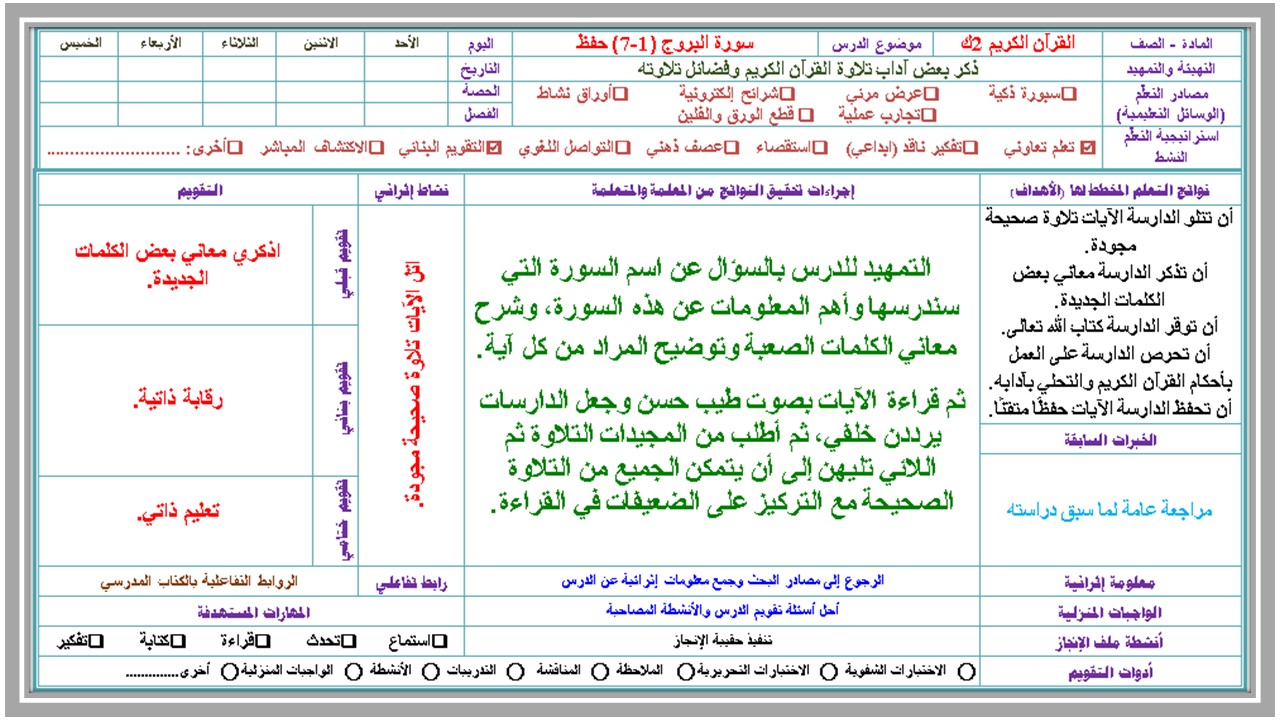 المادة - الصف القرآن الكريم 2ك موضوع الدرس سورة البروج (1-7) حفظ اليوم الأحد الاثنين الثلاثاء الأربعاء الخميس
التهيئة والتمهيد ذكر بعض آداب تلاوة القرآن الكريم وفضائل تلاوته التاريخ
مصادر التعلّم (الوسائل التعليمية) ☐سبورة ذكية ☐عرض مرئي ☐شرائح إلكترونية ☐أوراق نشاط الحصة
☐تجارب عملية ☐ قطع الورق والفلين الفصل
استراتيجية التعلّم النشط ☑ تعلم تعاوني ☐تفكير ناقد (ابداعي) ☐استقصاء ☐عصف ذهني ☐التواصل اللغوي ☑التقويم البنائي ☐الاكتشاف المباشر ☐أخرى: ..........................
نواتج التعلم المخطط لها (الأهداف) إجراءات تحقيق النواتج من المعلمة والمتعلمة نشاط إثرائي التقويم
أن تتلو الدارسة الآيات تلاوة صحيحة
مجودة.
أن تذكر الدارسة معاني بعض
الكلمات الجديدة.
أن توقر الدارسة كتاب الله تعالى.
أن تحرص الدارسة على العمل
بأحكام القرآن الكريم والتحلي بآدابه.
أن تحفظ الدارسة الآيات حفظًا متقنًا.
الخبرات السابقة
مراجعة عامة لما سبق دراسته
التمهيد للدرس بالسؤال عن اسم السورة التي
سندرسها وأهم المعلومات عن هذه السورة، وشرح
معاني الكلمات الصعبة وتوضيح المراد من كل آية.
ثم قراءة الآيات بصوت طيب حسن وجعل الدارسات
يرددن خلفي، ثم أطلب من المجيدات التلاوة ثم
اللائي تليهن إلى أن يتمكن الجميع من التلاوة
الصحيحة مع التركيز على الضعيفات في القراءة.
اتل الآيات تلاوة صحيحة مجودة.
تقويم قبلي
اذكري معاني بعض الكلمات
الجديدة.
تقويم بنائي
رقابة ذاتية.
تقويم ختامي
تعليم ذاتي.
معلومة إثرائية الرجوع إلى مصادر البحث وجمع معلومات إثرائية عن الدرس رابط تفاعلي الروابط التفاعلية بالكتاب المدرسي
الواجبات المنزلية أحل أسئلة تقويم الدرس والأنشطة المصاحبة المهارات المستهدفة
أنشطة ملف الإنجاز تنفيذ حقيبة الإنجاز ☐استماع ☐تحدث ☐قراءة ☐كتابة ☐تفكير
أدوات التقويم ○ الاختبارات الشفوية ○ الاختبارات التحريرية ○ الملاحظة ○ المناقشة ○ التدريبات ○ الأنشطة ○ الواجبات المنزلية ○ أخرى..............